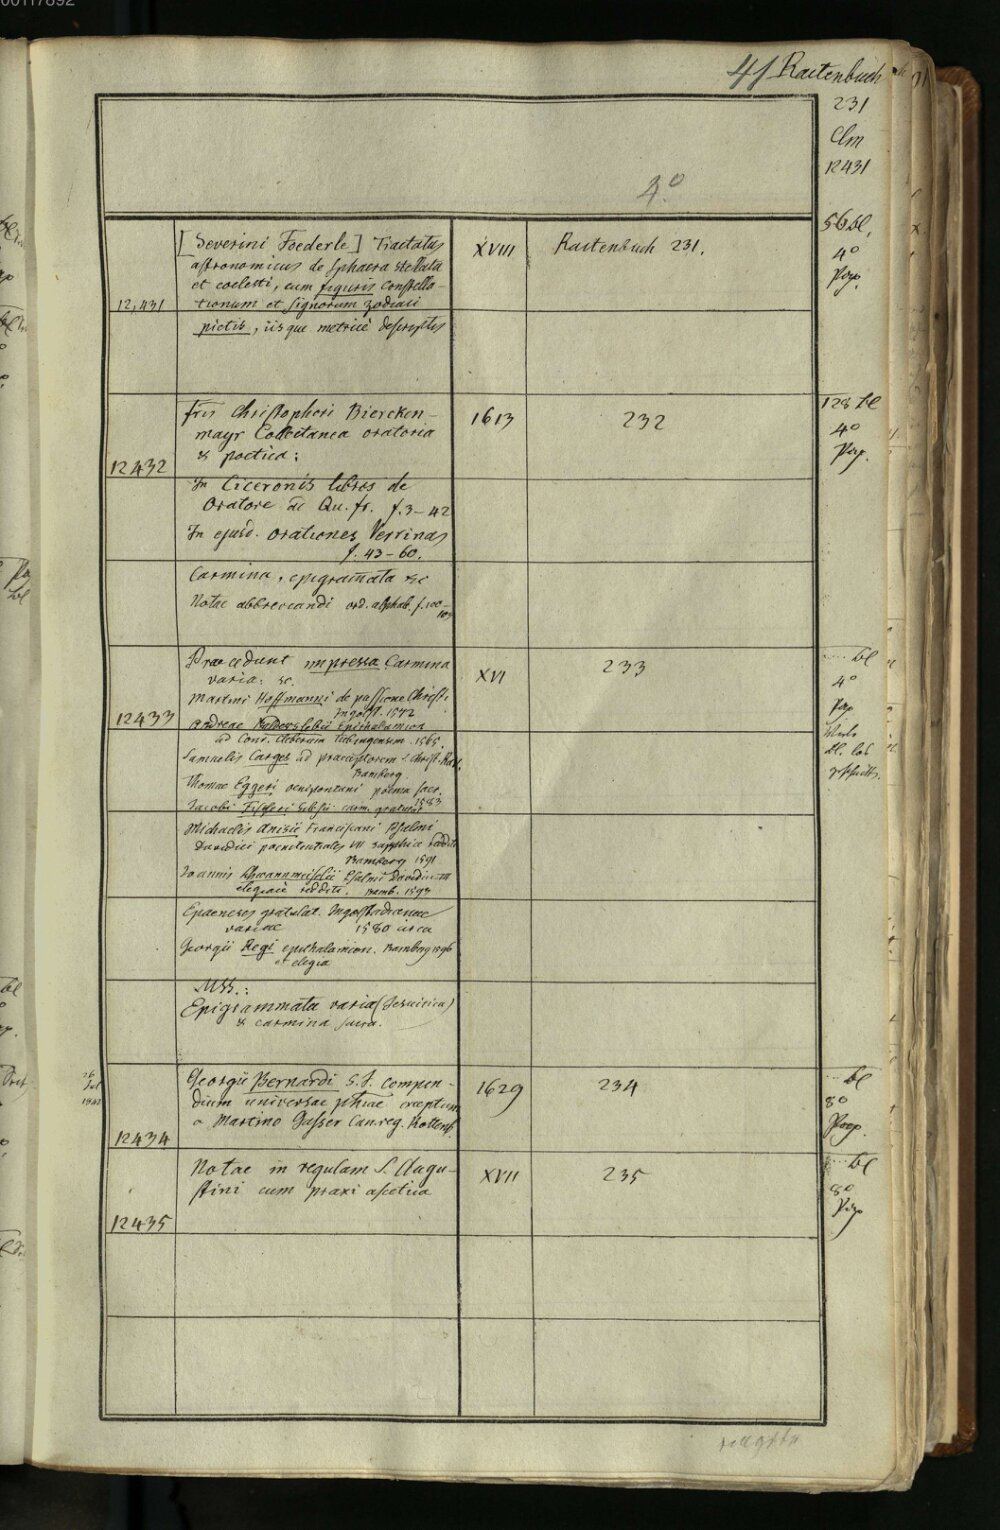 00117892
41 Raitenbuch
231
Clm
12431
4°
[Severini Foederle] Tractatus
astronomicus de sphaera stellata
et coelesti, cum figuris constella-
tionum et signorum zodiaci
pictis, iisque metricè descriptis
12,431
XVIII
Raitenbuch 231.
56 Bl.
4°
Pap.
fris Christophori Biercken-
mayr Collectanea oratoria
& poetica:
12432
In Ciceronis libros de
Oratore ac Qu. fr. f. 3-42
In ejusd. orationes Verrinas
f. 43-60.
Carmina, epigrammata &c
Notae abbreviandi ord. alphab. f. 100-
1613
232
128 Bl
4°
Pap.
Praecedunt impressa Carmina
varia: sc.
Martini Hoffmanni de passione Christi
Ingolst. 1572
12433
Andreae epithalamion
ad Conr. tubingensem. 1565.
Samuelis Carges ad praeceptorem
Bamberg
Thomae Eggeri oenipontani poema sacr.
1583
Jacobi Fischeri Silesii carm. gratulat.
Michaelis Anisii Franciscani Psalmi
Davidici poenitentiales VII sapphice redditi
Bamberg 1591
Joannis Psalmi Davidici VII
elegiacè redditi. Bamb. 1593
gratulat. Ingolstadienses
variae 1580 circa
Georgii Regi epithalamion. Bamberg 1596
et elegia
MSS.:
Epigrammata varia (Jesuitica)
& carmina sacra.
XVI
233
Bl
4°
Pap
26
Jul
Georgii Bernardi S.J. Compen-
dium universae phiae exceptum
a Martino Gasser Can. reg. Rottenb.
12434
1629
234
Bl
8°
Pap.
Notae in regulam S. Augu-
stini cum praxi ascetica
12435
XVII
235
Bl
8°
Pap